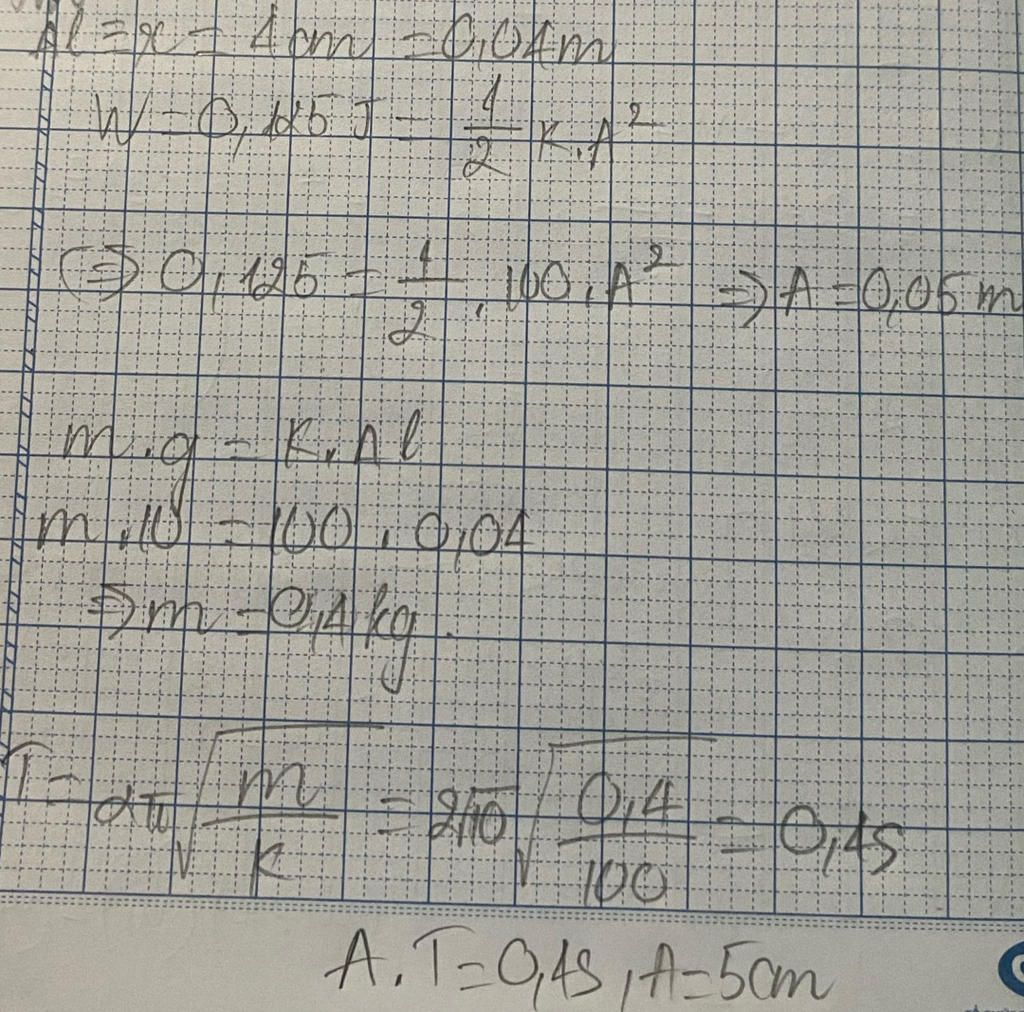 Δl = x = 4cm = 0,04m
W = 0,125 J = 1/2 K.A²
(⇒) 0,125 = 1/2 . 100 . A² ⇒ A = 0,05 m
m.g = K.Δl
m.10 = 100 . 0,04
⇒ m = 0,4 kg.
T = 2π√(m/k) = 2√10 √(0,4/100) = 0,4s
A. T = 0,4s, A = 5cm